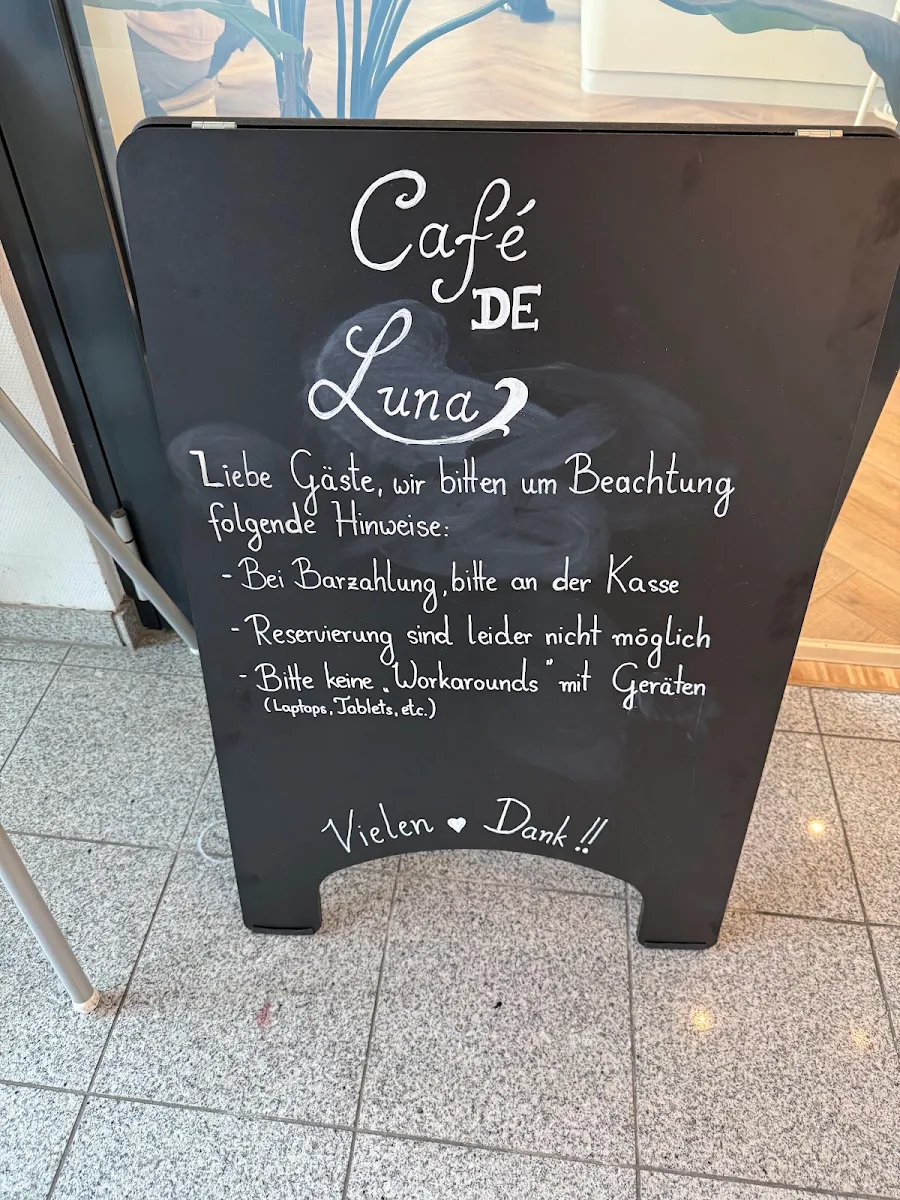 Café
DE
Luna
Liebe Gäste, wir bitten um Beachtung
folgende Hinweise:
- Bei Barzahlung, bitte an der Kasse
- Reservierung sind leider nicht möglich
- Bitte keine „Workarounds" mit Geräten
(Laptops, Tablets, etc.)
Vielen ♥ Dank!!